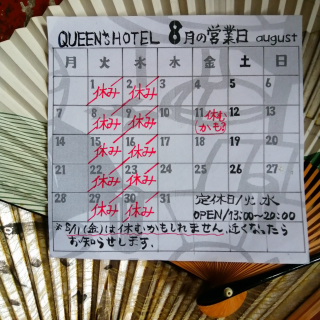 QUEEN'S HOTEL 8月の営業日 august
月 火 水 木 金 土 日
1 休み 2 休み 3 4 5 6
7 8 休み 9 休み 10 11 休むかも 12 13
14 15 休み 16 休み 17 18 19 20
21 22 休み 23 休み 24 25 26 27
28 29 休み 30 休み 31
定休日/火、水
OPEN/13:00〜20:00
※8/11(金)は休むかもしれません。近くなったら
お知らせします。